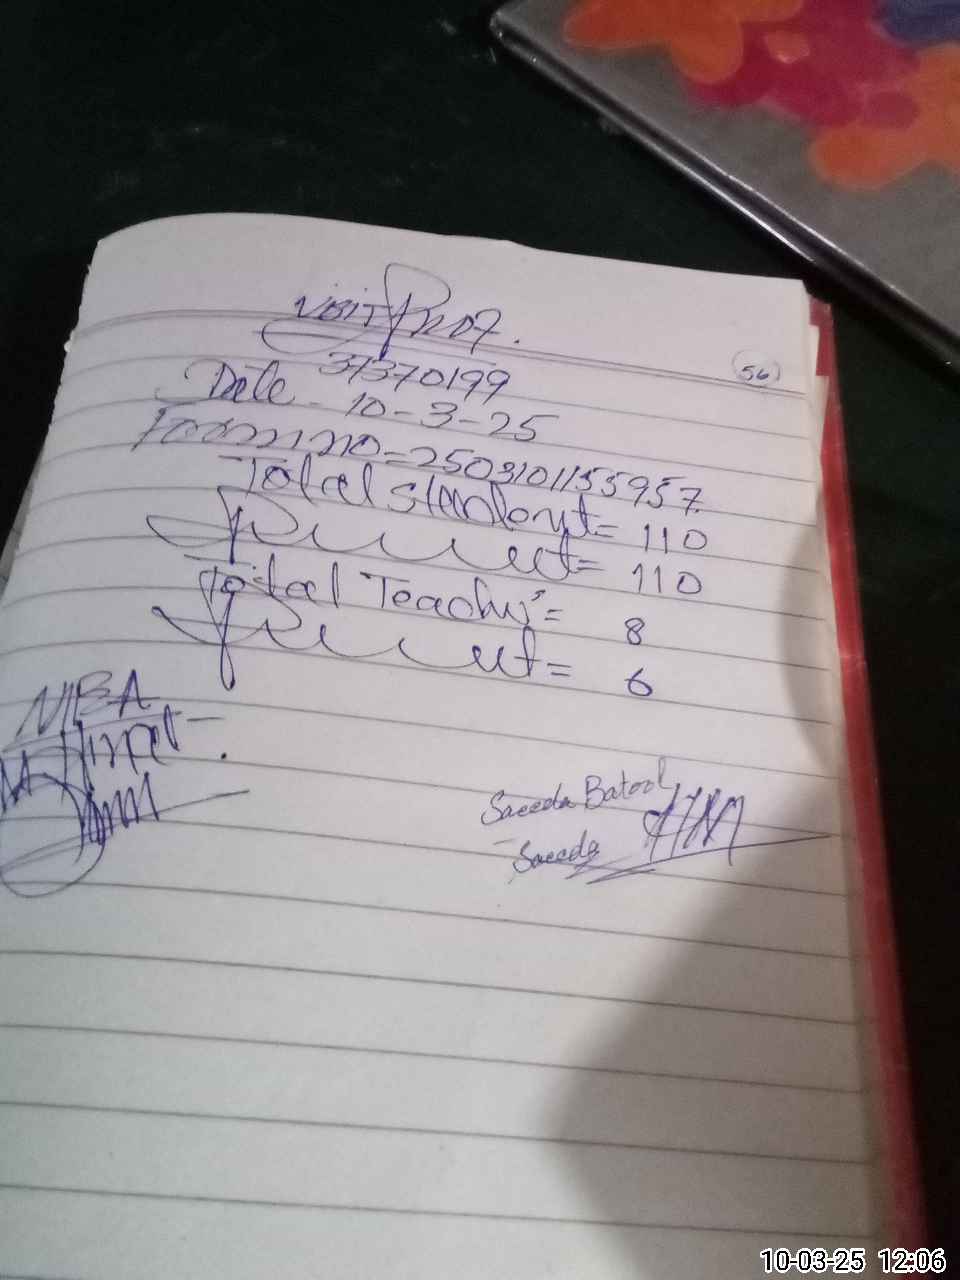 Visit Proof.
56
31370199
Date - 10-3-25
Form no = 2503101155957.
Total Student = 110
Present = 110
Total Teachers = 8
Present = 6
Saeeda Batool
Saeeda
10-03-25 12:06